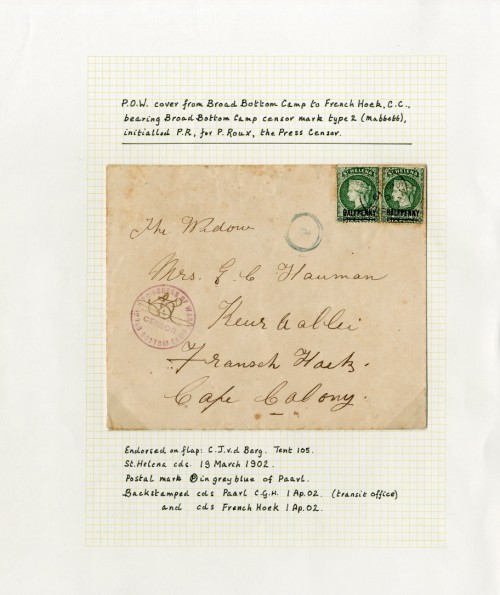 P.O.W. cover from Broad Bottom Camp to French Hoek, C.C.,
bearing Broad Bottom Camp censor mark type 2 (Mabbett),
initialled P.R, for P. Roux, the Press Censor.
ST HELENA ST HELENA
HALFPENNY HALFPENNY
The Widow
Mrs. G. C Hauman
PRISONERS OF WAR
CENSOR
BROAD BOTTOM CAMP
Keurvallei
Fransch Hoek.
Cape Colony.
Endorsed on flap: C.J.v.d Berg. Tent 105.
St.Helena cds. 19 March 1902.
Postal mark Ⓟ in grey blue of Paarl.
Backstamped cds Paarl C.G.H. 1 Ap.02. (transit office)
and cds French Hoek 1 Ap.02.